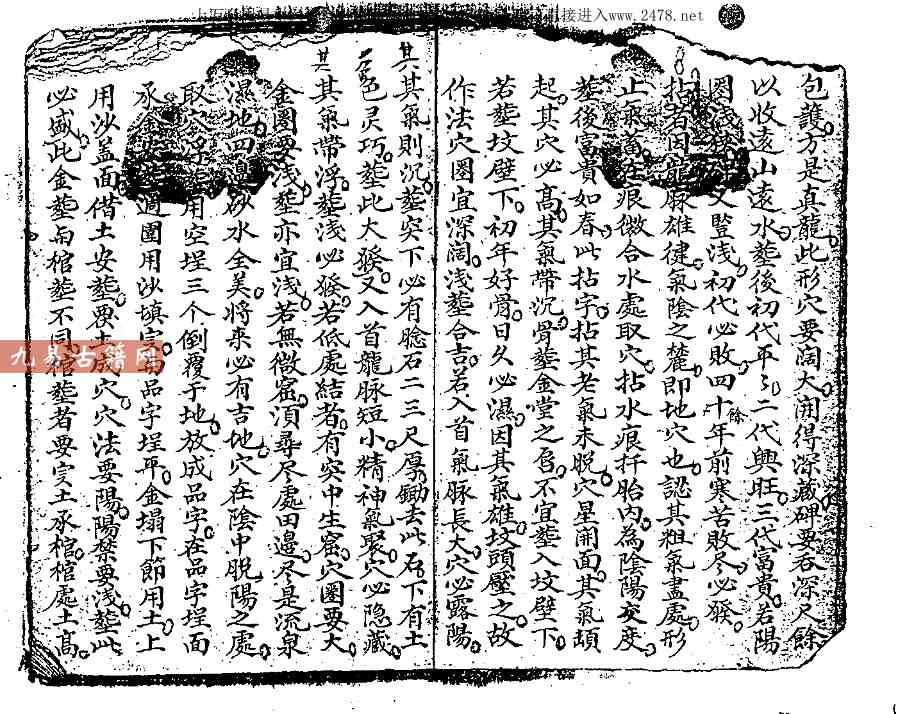 包護方是真龍此形穴要闊大開得深藏碑要吞深尺餘
以收遠山遠水塟後初代平〻二代興旺三代富貴若陽
圈浅 又豎浅初代必敗四十餘年前寒苦敗尽必發
拈者因龍脉雄徤氣陰之麓即地穴也認其粗氣盡處形
止氣畜在痕微合水處取穴拈水痕扦胎内為陰陽交度
塟後富貴如春此拈字拈其老氣未脫穴星開面其氣頑
起其穴必高其氣帶沉骨塟金堂之后不宜塟入坟壁下
若塟坟壁下初年好骨日久必濕因其氣雄坟頭壓之故
作法穴圈宜深闊浅塟合吉若入首氣脉長大穴必露陽
其其氣則沉塟突下必有脸石二三尺厚鋤去此石下有土
色灵巧塟此大發又入首龍脉短小精神氣聚穴必隐藏
其其氣帶浮塟淺必發若低處結者有突中生窟穴圈要大
金圈要浅塟亦宜浅若無微窟須尋尽處田邊尽是流泉
濕地四邊砂水全美將來必有吉地穴在陰中脫陽之處
取 浮 用空埕三个倒覆于地放成品字在品字埕面
承金 週圍用沙填实 品字埕平金塌下節用土上
用沙盖面借土安塟 土成穴穴法要陽陽禁要浅塟此
必盛此金塟与棺塟不同棺塟者要实土承棺棺處土高
九易古籍网
接进入www.2478.net